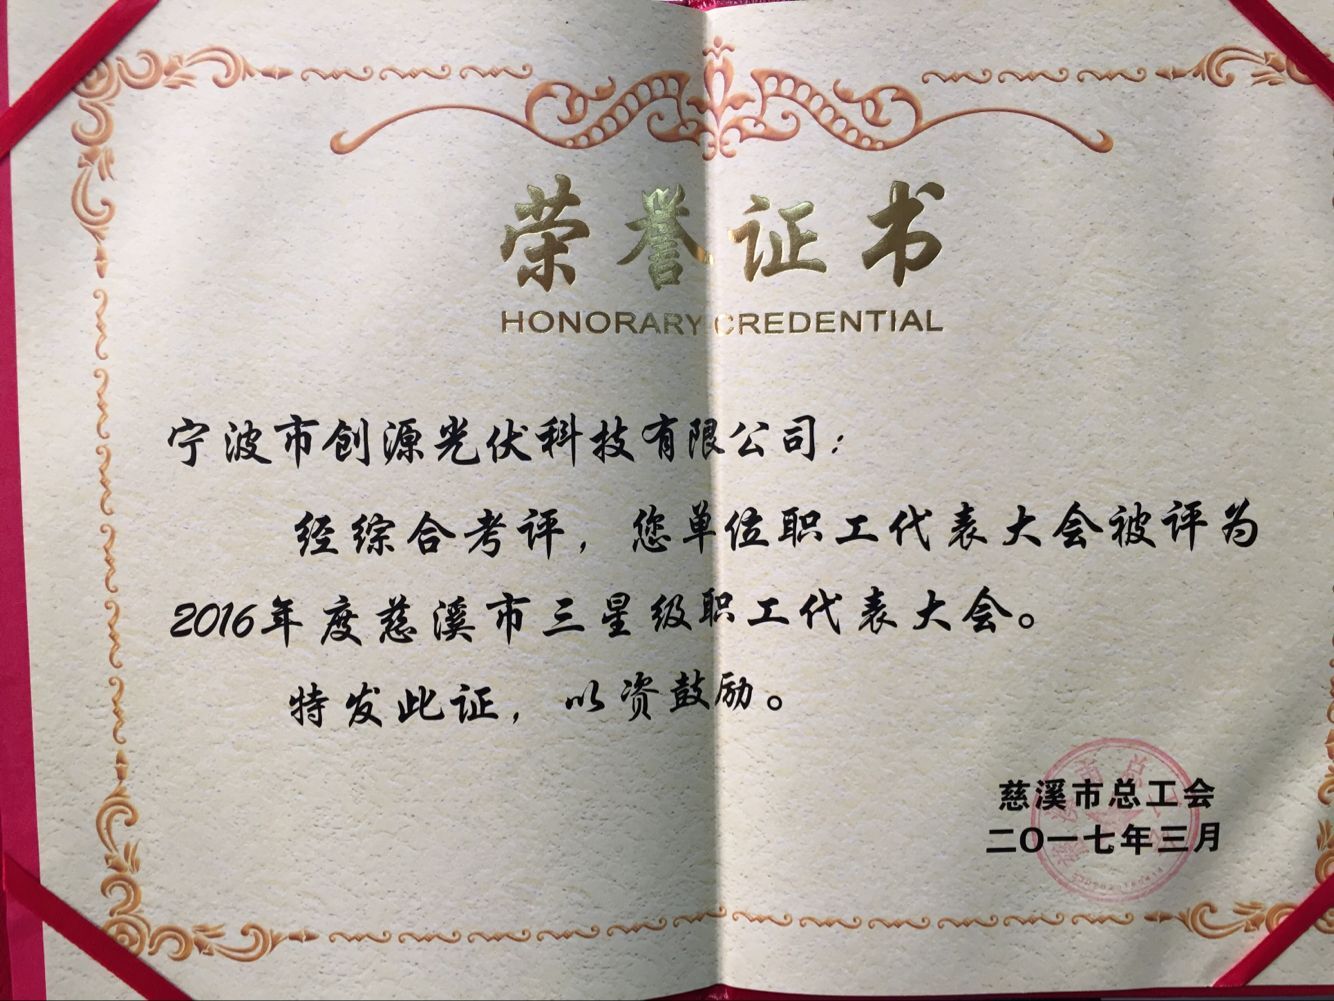 荣誉证书
HONORARY CREDENTIAL
宁波市创源光伏科技有限公司：
经综合考评，您单位职工代表大会被评为
2016年度慈溪市三星级职工代表大会。
特发此证，以资鼓励。
慈溪市总工会
二〇一七年三月